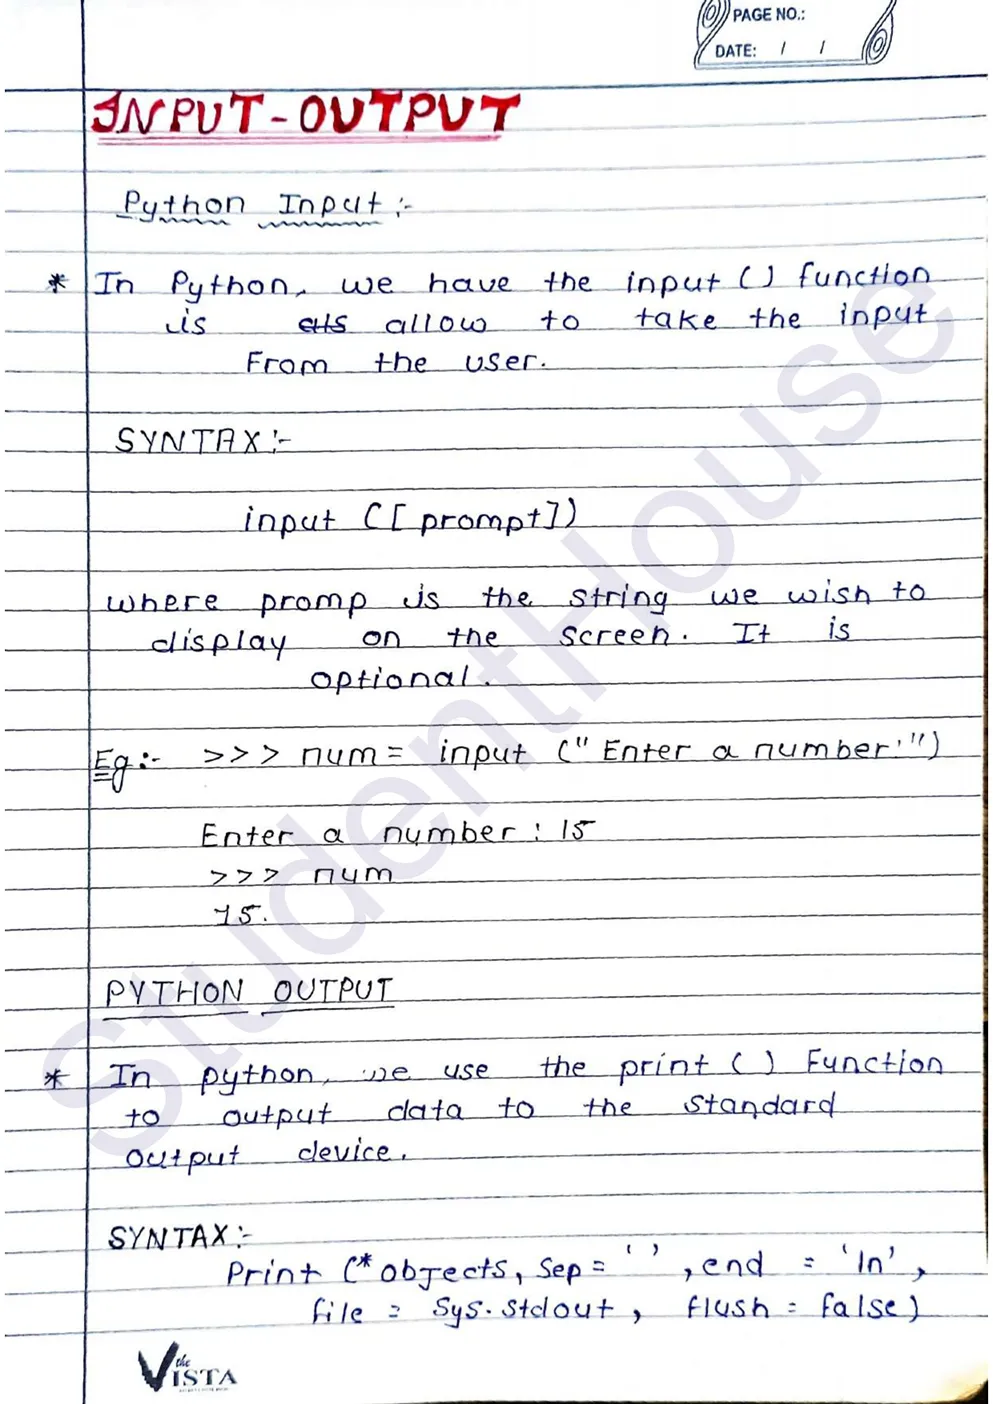 PAGE NO.:
DATE: / /
INPUT-OUTPUT
Python Input :-
* In Python, we have the input ( ) function
is allow to take the input
From the user.
SYNTAX :-
input ([ prompt])
where promp is the string we wish to
display on the screen. It is
optional.
Eg:- >>> num = input ("Enter a number:")
Enter a number : 15
>>> num
15.
PYTHON OUTPUT
* In python, we use the print ( ) Function
to output data to the standard
output device.
SYNTAX :-
Print (* objects, Sep = ' ' , end = 'ln' ,
file = Sys.stdout , flush = false)
the VISTA
StudentHouse